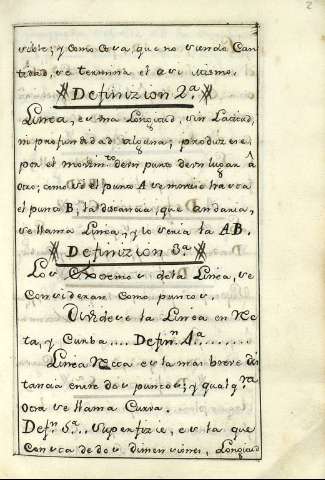 2
vible; y como cosa, que no siendo Can-
tidad, se termina el asi mismo.
Definizion 2ª.
Linea, es una Longitud, sin Latitud,
ni profundidad alguna; produzese
por el movimto de un punto de un lugar â
otro; como si el punto A se moviese hasta
el punto B, la distancia, que andaria,
se llama Linea; y lo seria la AB.
Definizion 3ª.
Los Extremos de la Linea, se
consideran como puntos.
Dividese la Linea en Rec-
ta, y Curba.... Defin.n 4ª
Linea Recta es la mas breve dis-
tancia entre dos puntos; y qualqra
otra se llama Curva.
Defn. 5ª. Superfizie, es la que
consta de dos dimensiones, Longitud